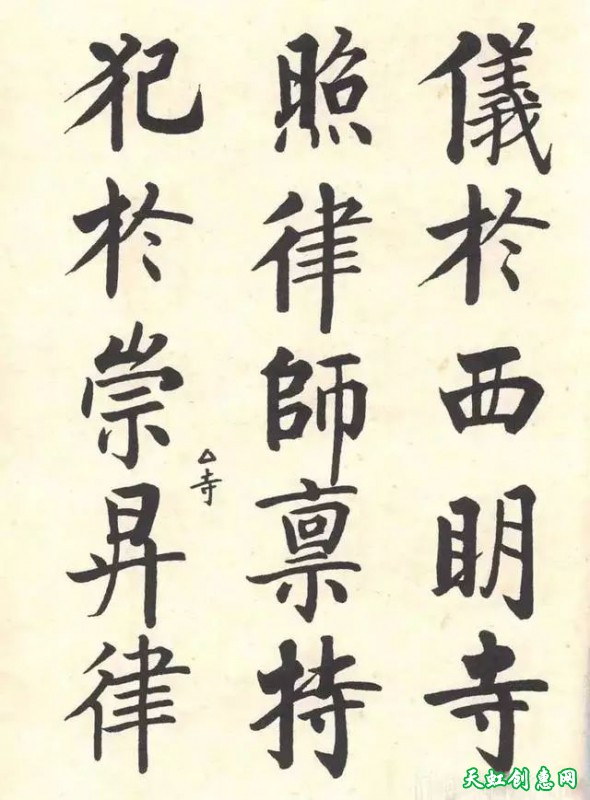 儀於西明寺
照律師禀持
犯於崇昇律
寺
天虹创惠网